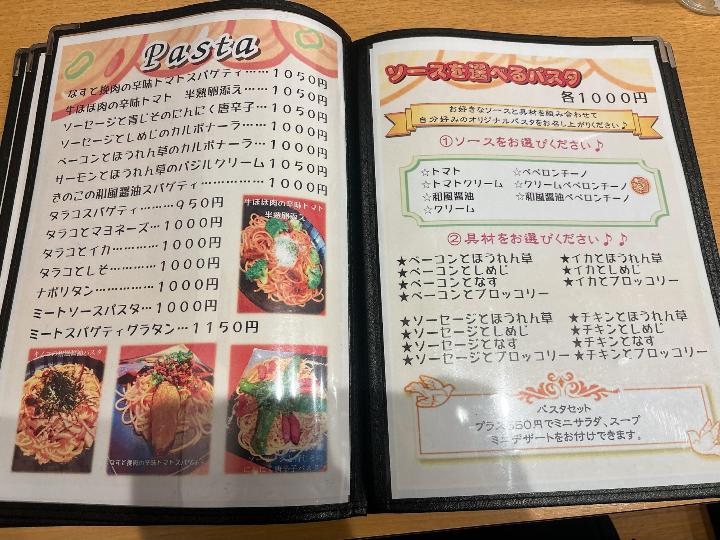 Pasta
なすと挽肉の辛味トマトスパゲティ……1050円
牛ほほ肉の辛味トマト 半熟卵添え…1050円
ソーセージと青じそのにんにく唐辛子…1050円
ソーセージとしめじのカルボナーラ……1000円
ベーコンとほうれん草のカルボナーラ…1000円
サーモンとほうれん草のバジルクリーム 1050円
きのこの和風醤油スパゲティ……………1000円
タラコスパゲティ………950円
タラコとマヨネーズ…1000円
タラコとイカ…………1000円
タラコとしそ…………1000円
ナポリタン……………1000円
ミートソースパスタ…1000円
ミートスパゲティグラタン…1150円
牛ほほ肉の辛味トマト
半熟卵添え
なすと挽肉の辛味トマトスパゲティ
ソースを選べるパスタ
各1000円
お好きなソースと具材を組み合わせて
自分好みのオリジナルパスタをお召し上がりください♪
①ソースをお選びください♪
☆トマト
☆トマトクリーム
☆和風醤油
☆クリーム
☆ペペロンチーノ
☆クリームペペロンチーノ
☆和風醤油ペペロンチーノ
②具材をお選びください♪♪
★ベーコンとほうれん草
★ベーコンとしめじ
★ベーコンとなす
★ベーコンとブロッコリー
★イカとほうれん草
★イカとしめじ
★イカとブロッコリー
★ソーセージとほうれん草
★ソーセージとしめじ
★ソーセージとなす
★ソーセージとブロッコリー
★チキンとほうれん草
★チキンとしめじ
★チキンとなす
★チキンとブロッコリー
パスタセット
プラス350円でミニサラダ、スープ
ミニデザートをお付けできます。